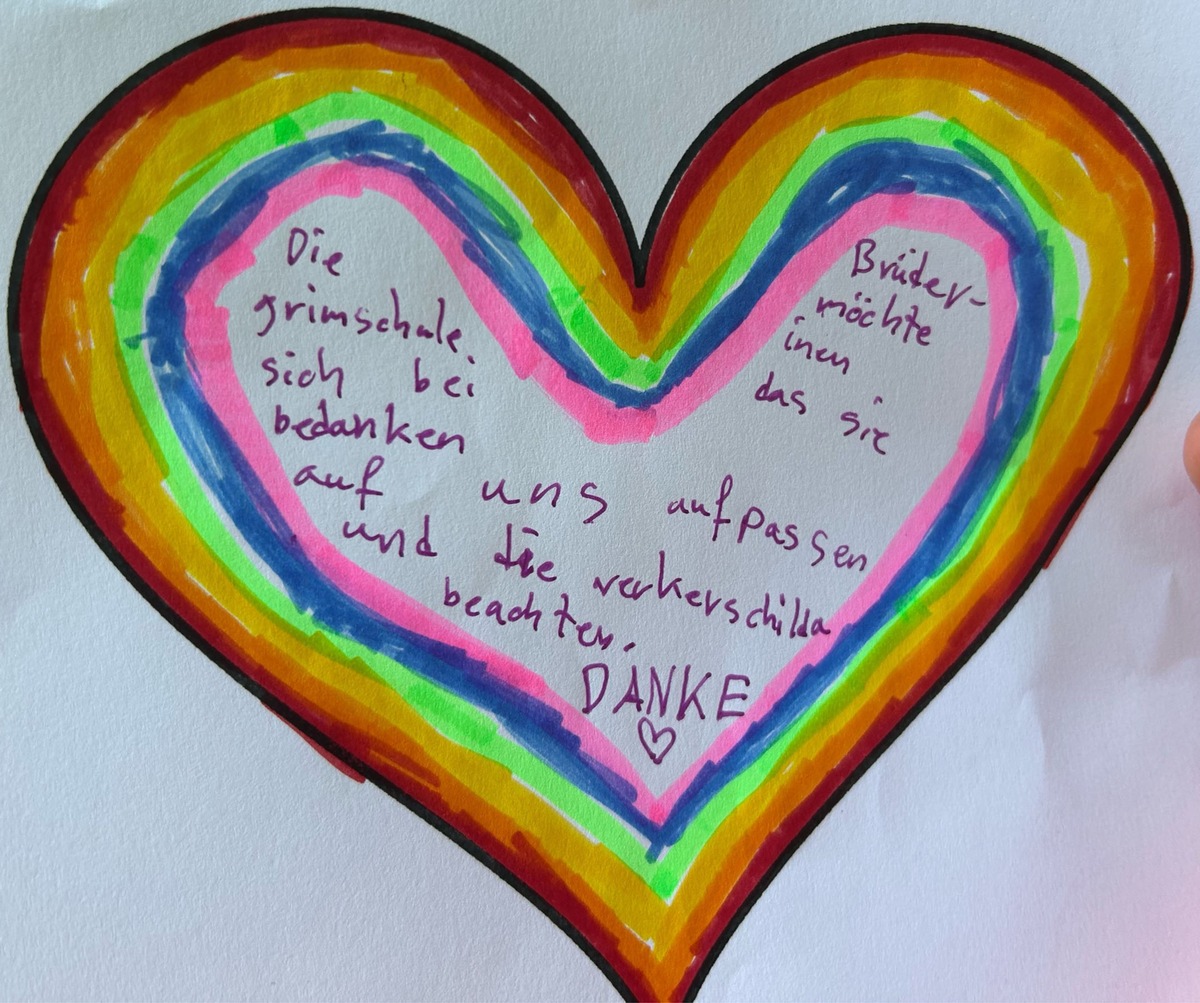 Die Brüder-
grimschule möchte
sich bei inen
bedanken das sie
auf uns aufpassen
und die verkerschilda
beachten.
DANKE